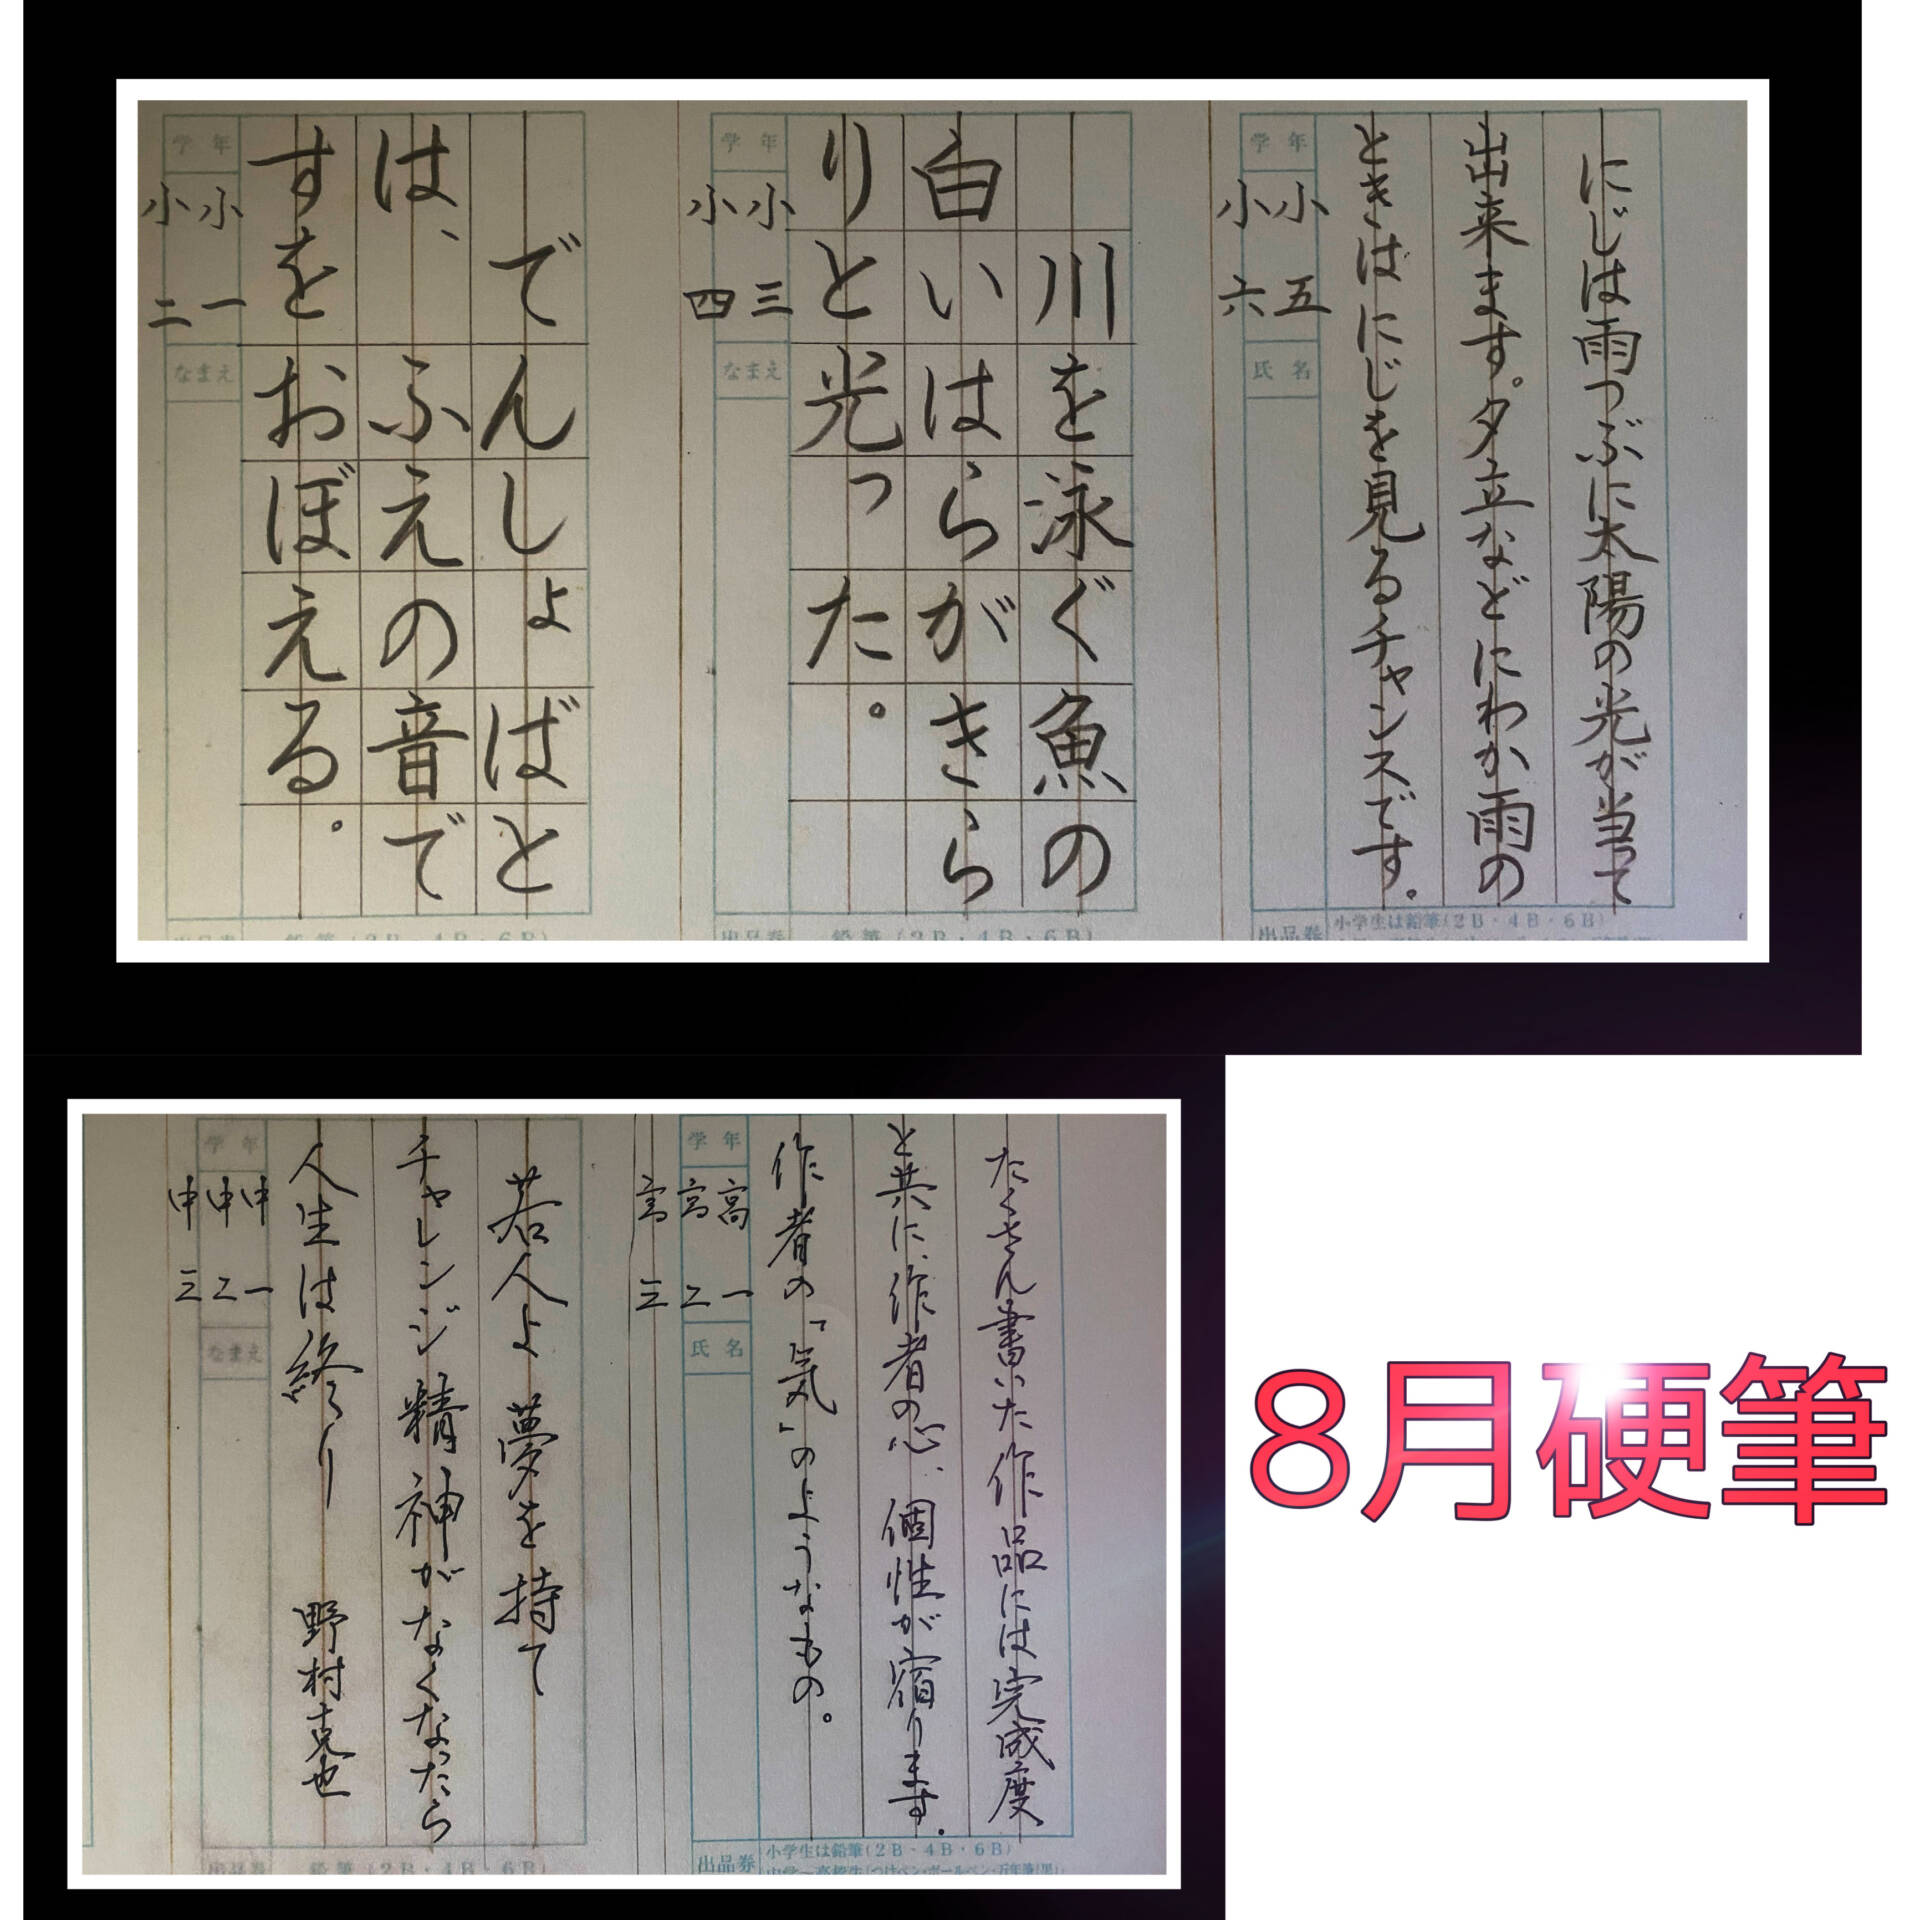 にじは雨つぶに太陽の光が当って
出来ます。夕立などにわか雨の
ときはにじを見るチャンスです。
学年
小五
小六
氏名
出品券
小学生は鉛筆(2B・4B・6B)
川を泳ぐ魚の
白いはらがきら
りと光った。
学年
小三
小四
なまえ
出品券
鉛筆(2B・4B・6B)
でんしょばと
は、ふえの音で
すをおぼえる。
学年
小一
小二
なまえ
出品券
鉛筆(2B・4B・6B)
たくさん書いた作品には完成度
と共に、作者の心、個性が宿ります。
作者の「気」のようなもの。
学年
高一
高二
高三
氏名
出品券
小学生は鉛筆(2B・4B・6B)
中学〜高校生(つけペン・ボールペン・万年筆(黒))
若人よ夢を持て
チャレンジ精神がなくなったら
人生は終り 野村克也
学年
中一
中二
中三
なまえ
出品券
鉛筆(2B・4B・6B)
8月硬筆